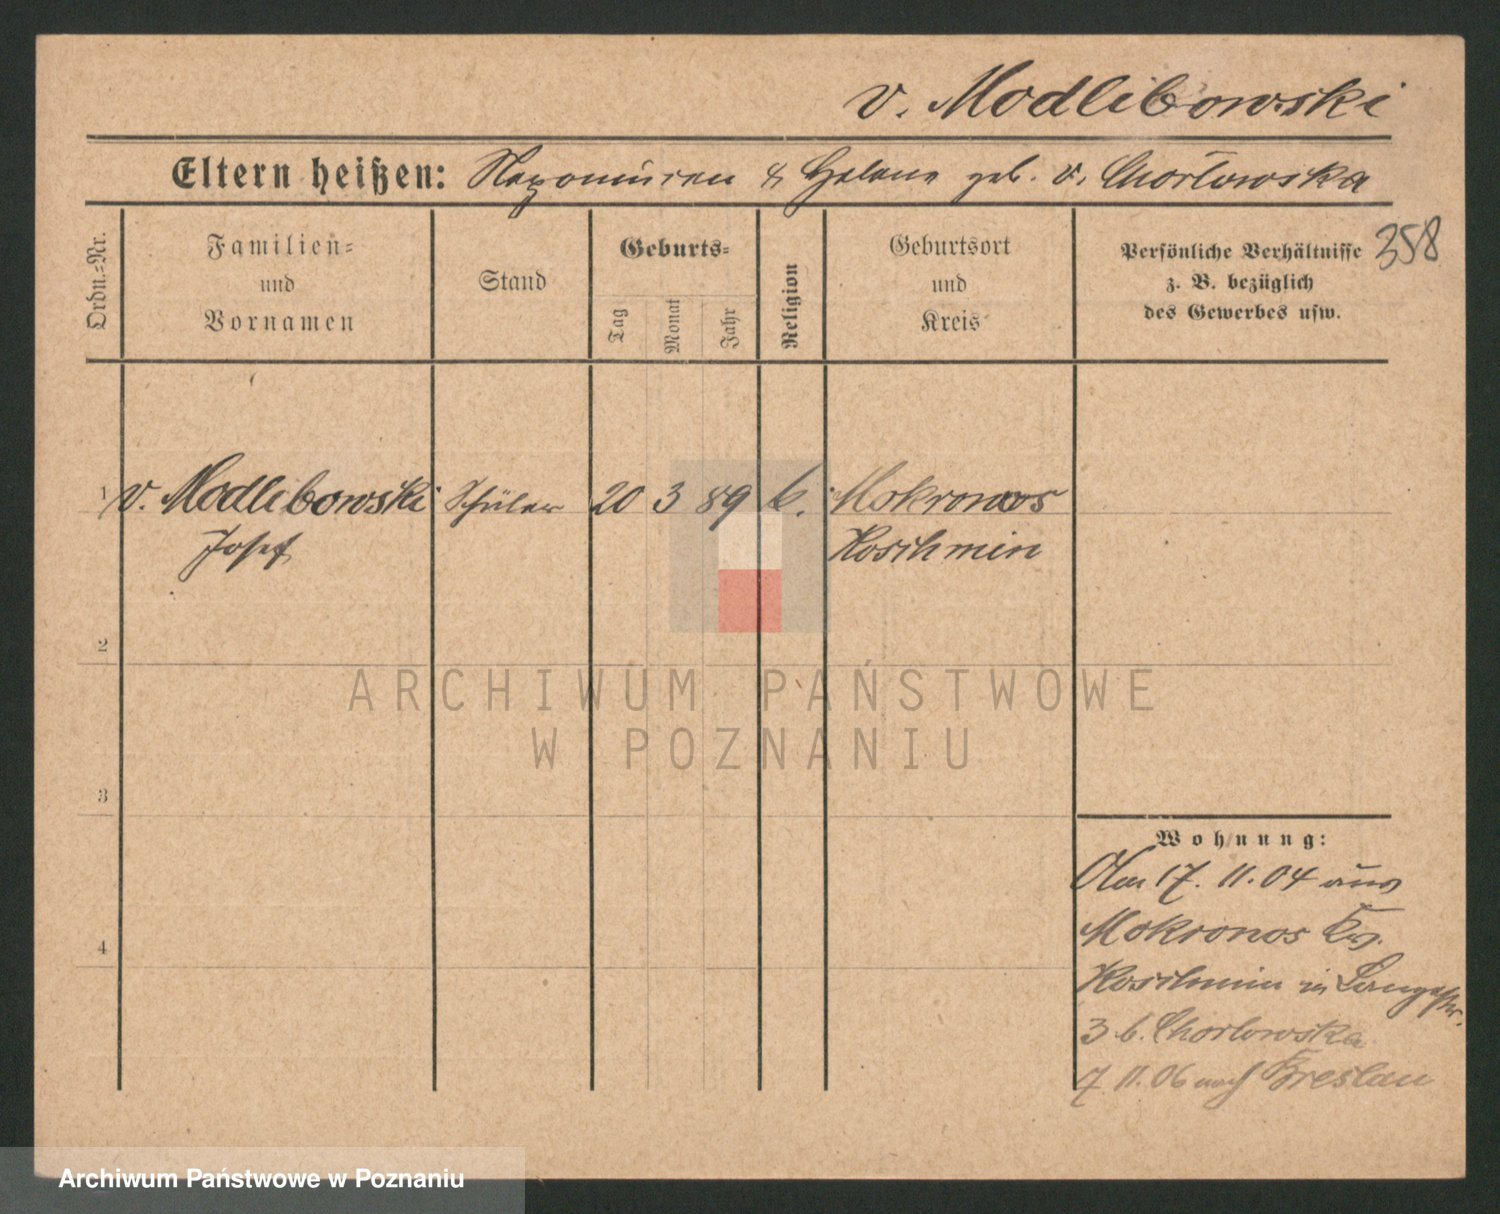 v. Modlibowski
Eltern heißen: Nepomucen & Helene geb. v. Chorlowska
358
Ordn.=Nr.
Familien=
und
Vornamen
Stand
Geburts=
Tag
Monat
Jahr
Religion
Geburtsort
und
Kreis
Persönliche Verhältnisse
z. B. bezüglich
des Gewerbes usw.
1 v. Modlibowski Schüler 20 3 89 k. Mokronos
Josef Koschmin
2
3
4
Wohnung:
Am 17. 11. 04 aus
Mokronos Krs.
Koschmin in Langestr.
3 b. Chorlowska
7. 11. 06 nach Breslau
ARCHIWUM PAŃSTWOWE
W POZNANIU
Archiwum Państwowe w Poznaniu